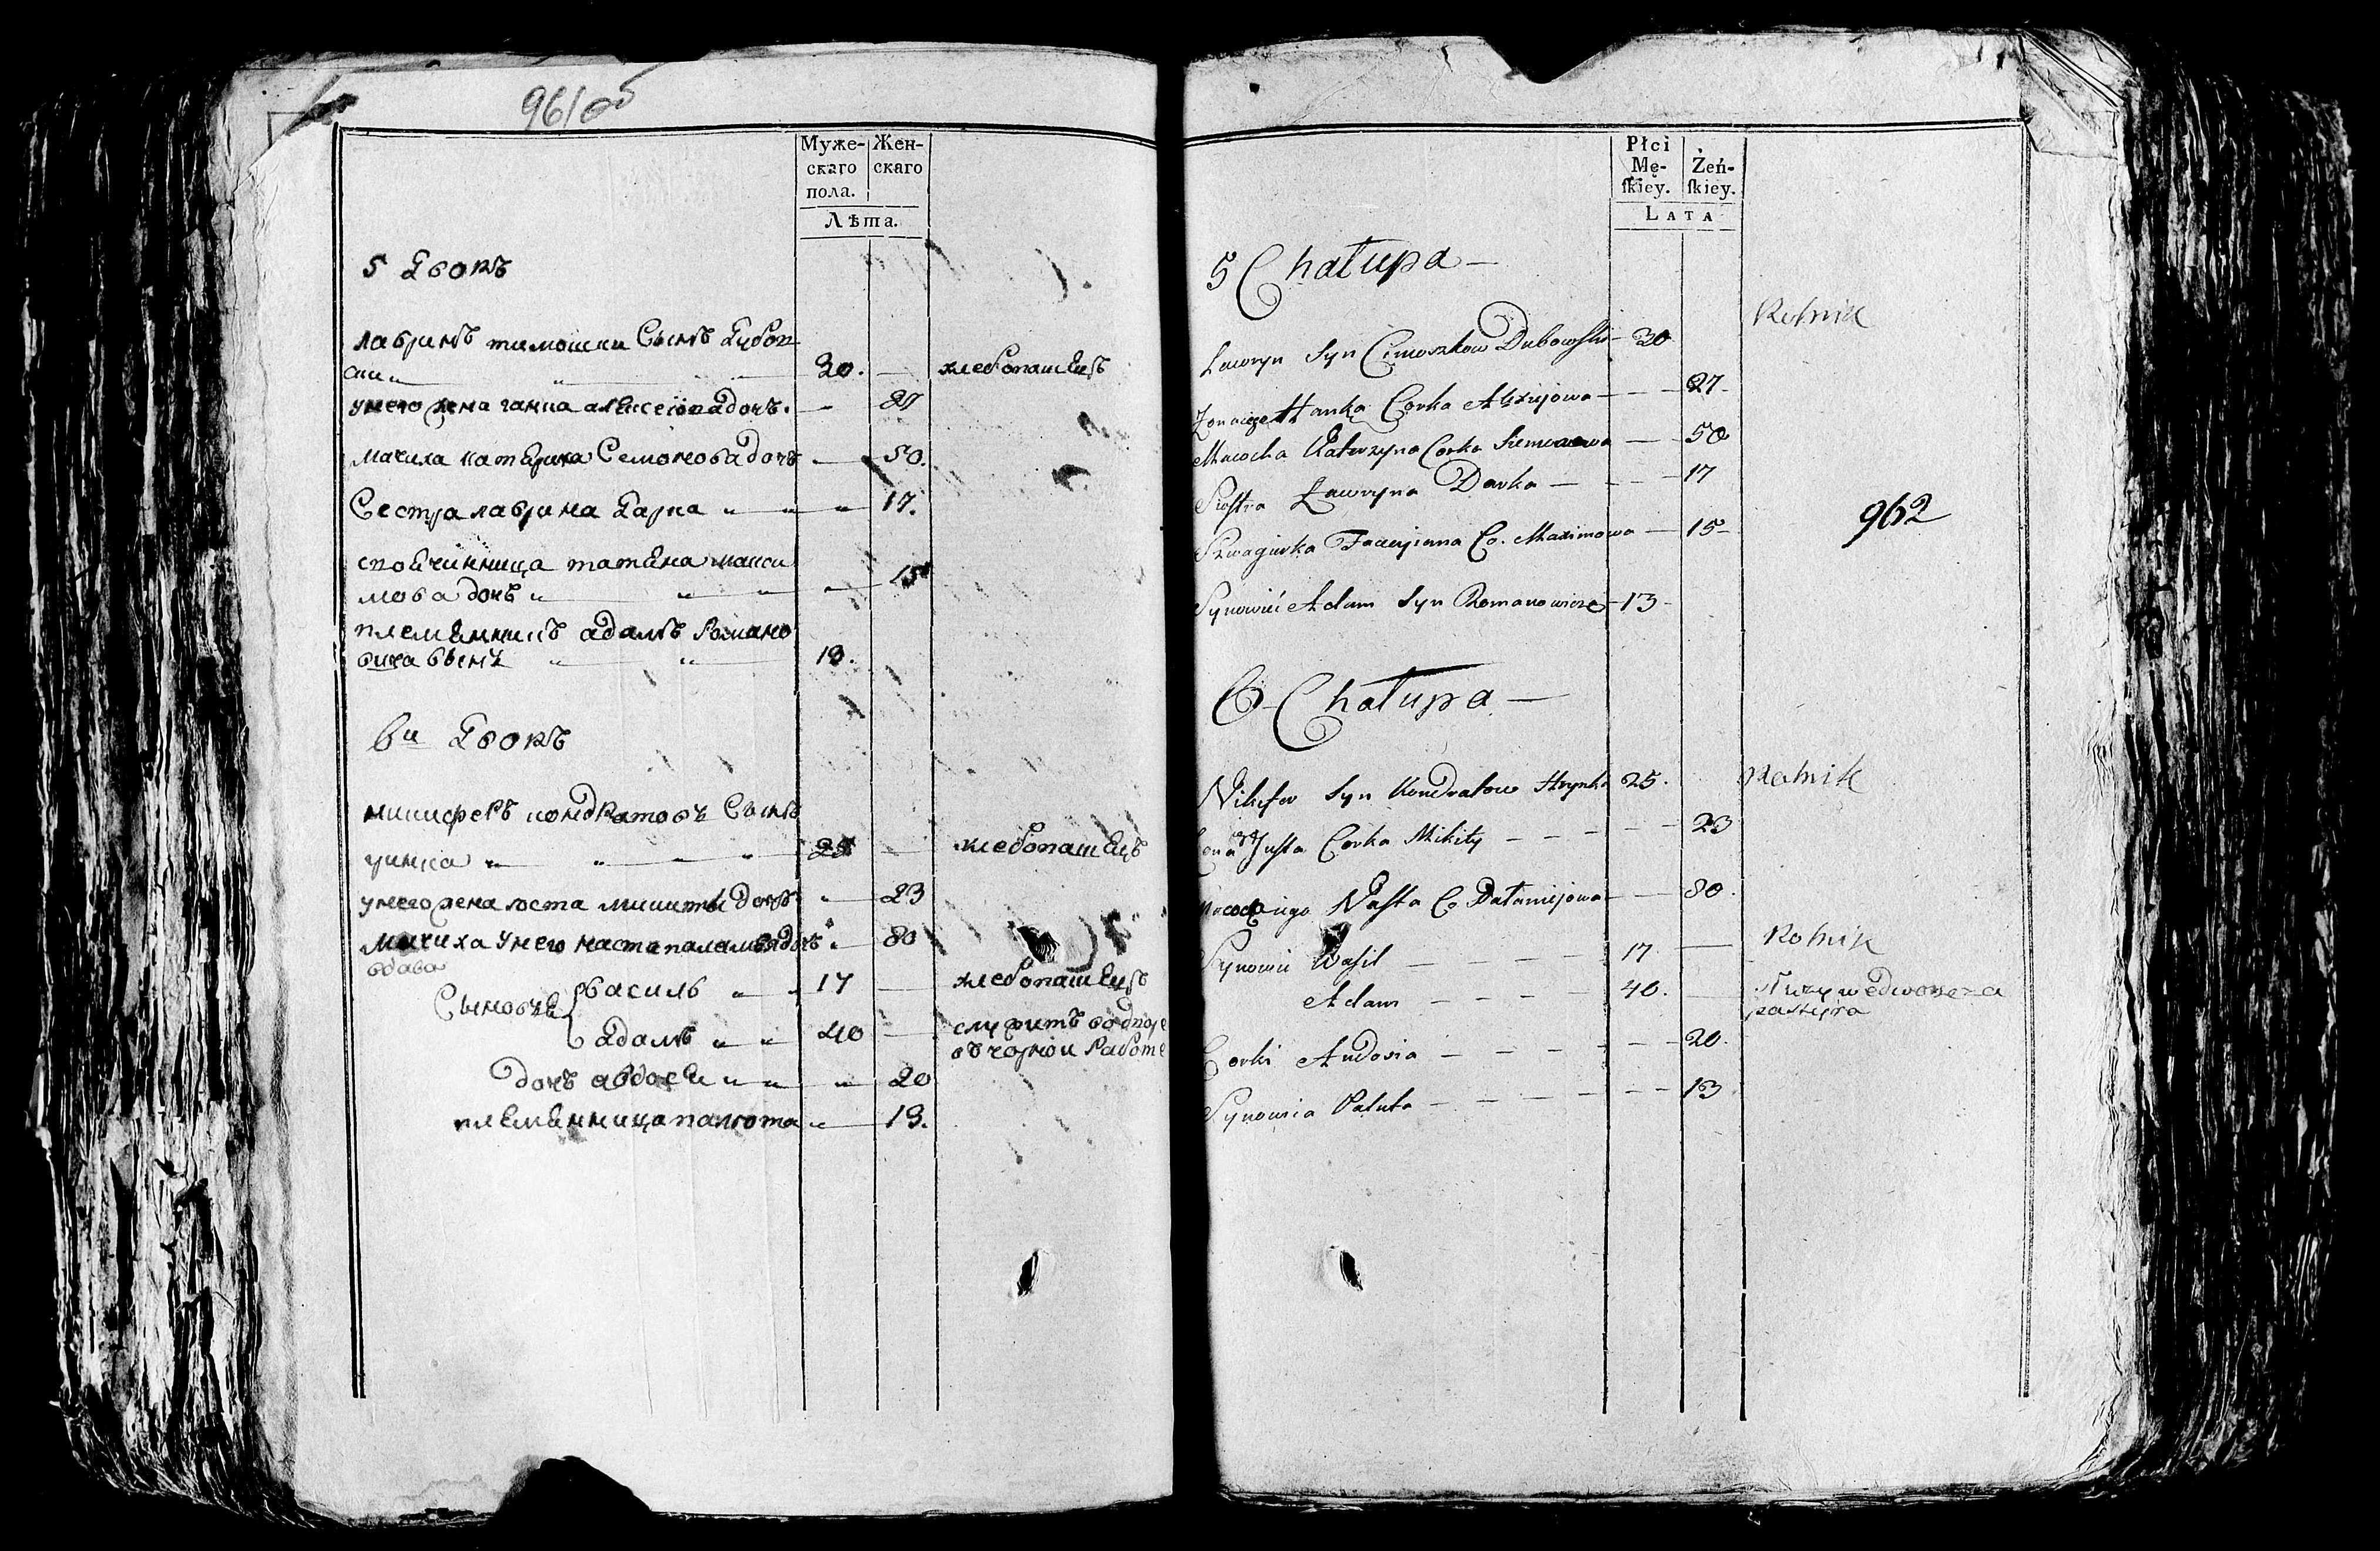 961об
Муже-
скаго
пола.
Жен-
скаго
Лѣта.
5 Дворъ
лавринъ тимошки Сынъ Дубов
ски 30. — хлебопашецъ
унего жена ганна алексеева дочъ. — 27
мачиха катерина Семонова дочъ — 50.
Сестра лаврина Дарка — 17.
своячинница татяна макси
мова дочъ — 15
племянникъ адамъ Романо
вича сынъ 13.
6й Дворъ
никиферъ кондратовъ Сынъ
25 — хлебопашецъ
унего жена юста микиты дочъ — 23
мачиха унего наста — 80
вдова
Сыновъя Василь 17 — хлебопашецъ
адамъ 40 — служитъ
въ чорной работе
дочъ авдосия — 20
племянница палюта — 13.
Płci
Mę-
ſkiey.
Żeń-
ſkiey.
LATA
5 Chałupa —
Rolnik
Ławryn Syn Cimoszkow Dubowski — 30
Żona iego Hanka Corka Alexiejowa — 27
Macocha Katerzyna Corka Siemionowa — 50
Siostra Ławryna Darka — 17
962
Szwagierka Tacianna Co. Maximowa — 15 —
Synowiec Adam Syn Romanowicza — 13 —
6 Chałupa —
Nikifor Syn Kondratow Hrynka 25. Rolnik
Żona Justa Corka Mikity — 23
Macocha iego Nasta Co — 80.
Synowie Wasil — 17 — Rolnik
Adam — 40. — Służy we dworze za
pastyra
Corki Audosia — 20.
Synowica Paluta — 13